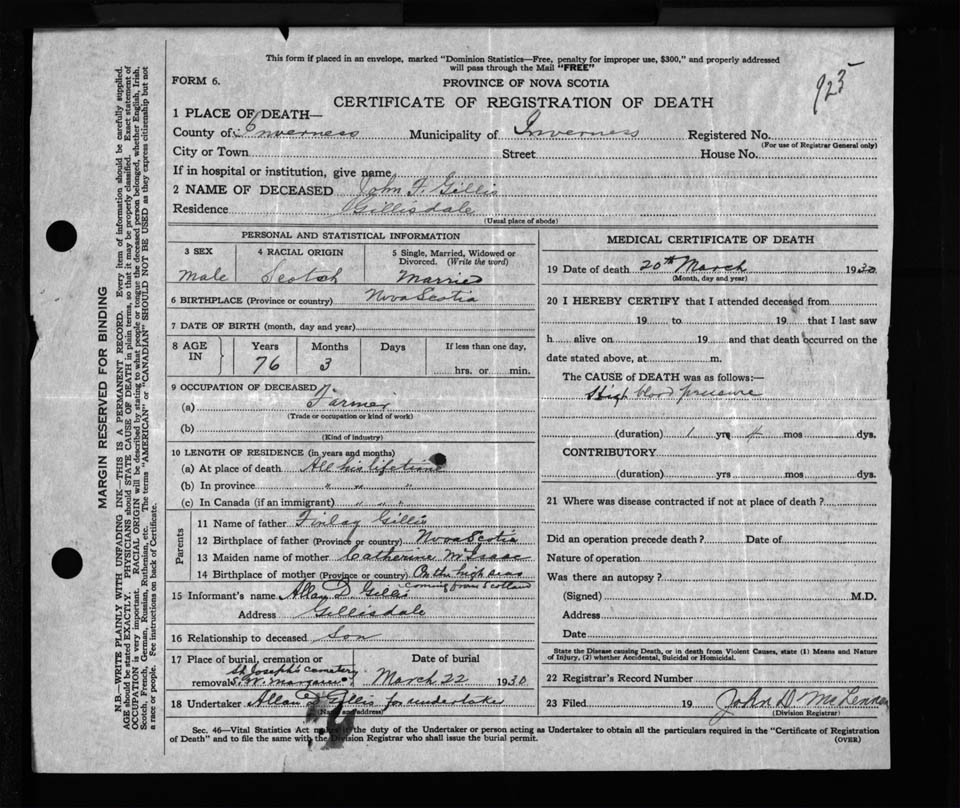 This form if placed in an envelope, marked "Dominion Statistics—Free, penalty for improper use, $300," and properly addressed
will pass through the Mail "FREE"
925
FORM 6.
PROVINCE OF NOVA SCOTIA
CERTIFICATE OF REGISTRATION OF DEATH
1 PLACE OF DEATH—
County of Inverness Municipality of Inverness Registered No.
(For use of Registrar General only)
City or Town Street House No.
If in hospital or institution, give name
2 NAME OF DECEASED John F. Gillis
Residence Gillisdale
(Usual place of abode)
PERSONAL AND STATISTICAL INFORMATION
3 SEX 4 RACIAL ORIGIN 5 Single, Married, Widowed or
Divorced. (Write the word)
Male Scotch Married
6 BIRTHPLACE (Province or country) Nova Scotia
7 DATE OF BIRTH (month, day and year)
8 AGE IN Years Months Days If less than one day,
76 3 hrs. or min.
9 OCCUPATION OF DECEASED
(a) Farmer
(Trade or occupation or kind of work)
(b)
(Kind of industry)
10 LENGTH OF RESIDENCE (in years and months)
(a) At place of death All his lifetime
(b) In province " " "
(c) In Canada (if an immigrant) " " "
Parents
11 Name of father Finlay Gillis
12 Birthplace of father (Province or country) Nova Scotia
13 Maiden name of mother Catherine McIsaac
14 Birthplace of mother (Province or country) On the high seas
coming from Scotland
15 Informant's name Allan D Gillis
Address Gillisdale
16 Relationship to deceased Son
17 Place of burial, cremation or Date of burial
St Joseph's cemetery
removal S. W. Margaree March 22 1930
18 Undertaker Allan D Gillis for undertaker
(Name and address)
MEDICAL CERTIFICATE OF DEATH
19 Date of death 20th March 1930
(Month, day and year)
20 I HEREBY CERTIFY that I attended deceased from
19 to 19 that I last saw
h alive on 19 and that death occurred on the
date stated above, at m.
The CAUSE of DEATH was as follows:—
High blood pressure
(duration) 1 yrs 4 mos dys.
CONTRIBUTORY
(duration) yrs mos dys.
21 Where was disease contracted if not at place of death?
Did an operation precede death? Date of
Nature of operation
Was there an autopsy?
(Signed) M.D.
Address
Date
State the Disease causing Death, or in death from Violent Causes, state (1) Means and Nature
of Injury, (2) whether Accidental, Suicidal or Homicidal.
22 Registrar's Record Number
23 Filed 19 John D. McLennan
(Division Registrar)
Sec. 46—Vital Statistics Act makes it the duty of the Undertaker or person acting as Undertaker to obtain all the particulars required in the "Certificate of Registration
of Death" and to file the same with the Division Registrar who shall issue the burial permit.
(OVER)
MARGIN RESERVED FOR BINDING
N.B.—WRITE PLAINLY WITH UNFADING INK—THIS IS A PERMANENT RECORD. Every item of information should be carefully supplied.
AGE should be stated EXACTLY. PHYSICIANS should STATE CAUSE OF DEATH in plain terms, so that it may be properly classified. Exact statement of
OCCUPATION is very important. RACIAL ORIGIN will be described by stating to what people or tongue the deceased person belonged, whether English, Irish,
Scotch, French, German, Russian, Ruthenian, etc. The terms "AMERICAN" or "CANADIAN" SHOULD NOT BE USED as they express citizenship but not
a race or people. See instructions on back of Certificate.